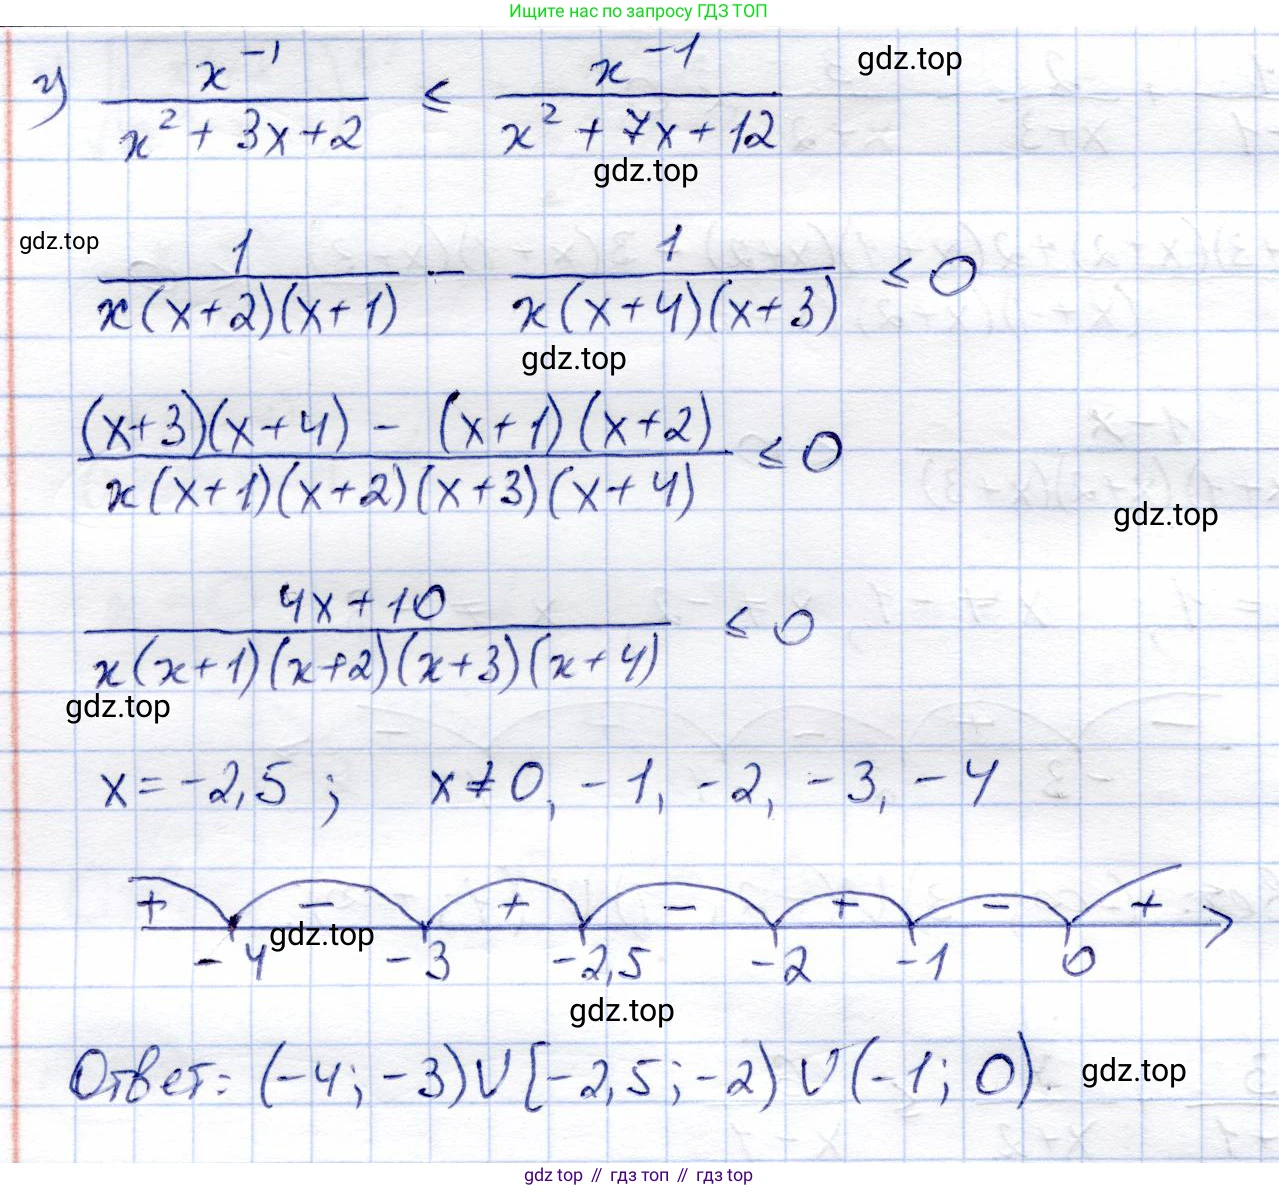 Ищите нас по запросу ГДЗ ТОП
г) x^{-1} / (x² + 3x + 2) ≤ x^{-1} / (x² + 7x + 12)
gdz.top
gdz.top
gdz.top
1 / (x(x+2)(x+1)) - 1 / (x(x+4)(x+3)) ≤ 0
gdz.top
((x+3)(x+4) - (x+1)(x+2)) / (x(x+1)(x+2)(x+3)(x+4)) ≤ 0
gdz.top
(4x+10) / (x(x+1)(x+2)(x+3)(x+4)) ≤ 0
gdz.top
x = -2,5 ; x ≠ 0, -1, -2, -3, -4
+ - + - + - +
gdz.top
-4 -3 -2,5 -2 -1 0
gdz.top
Ответ: (-4; -3) ∪ [-2,5; -2) ∪ (-1; 0)
gdz.top
gdz top // гдз топ // гдз top